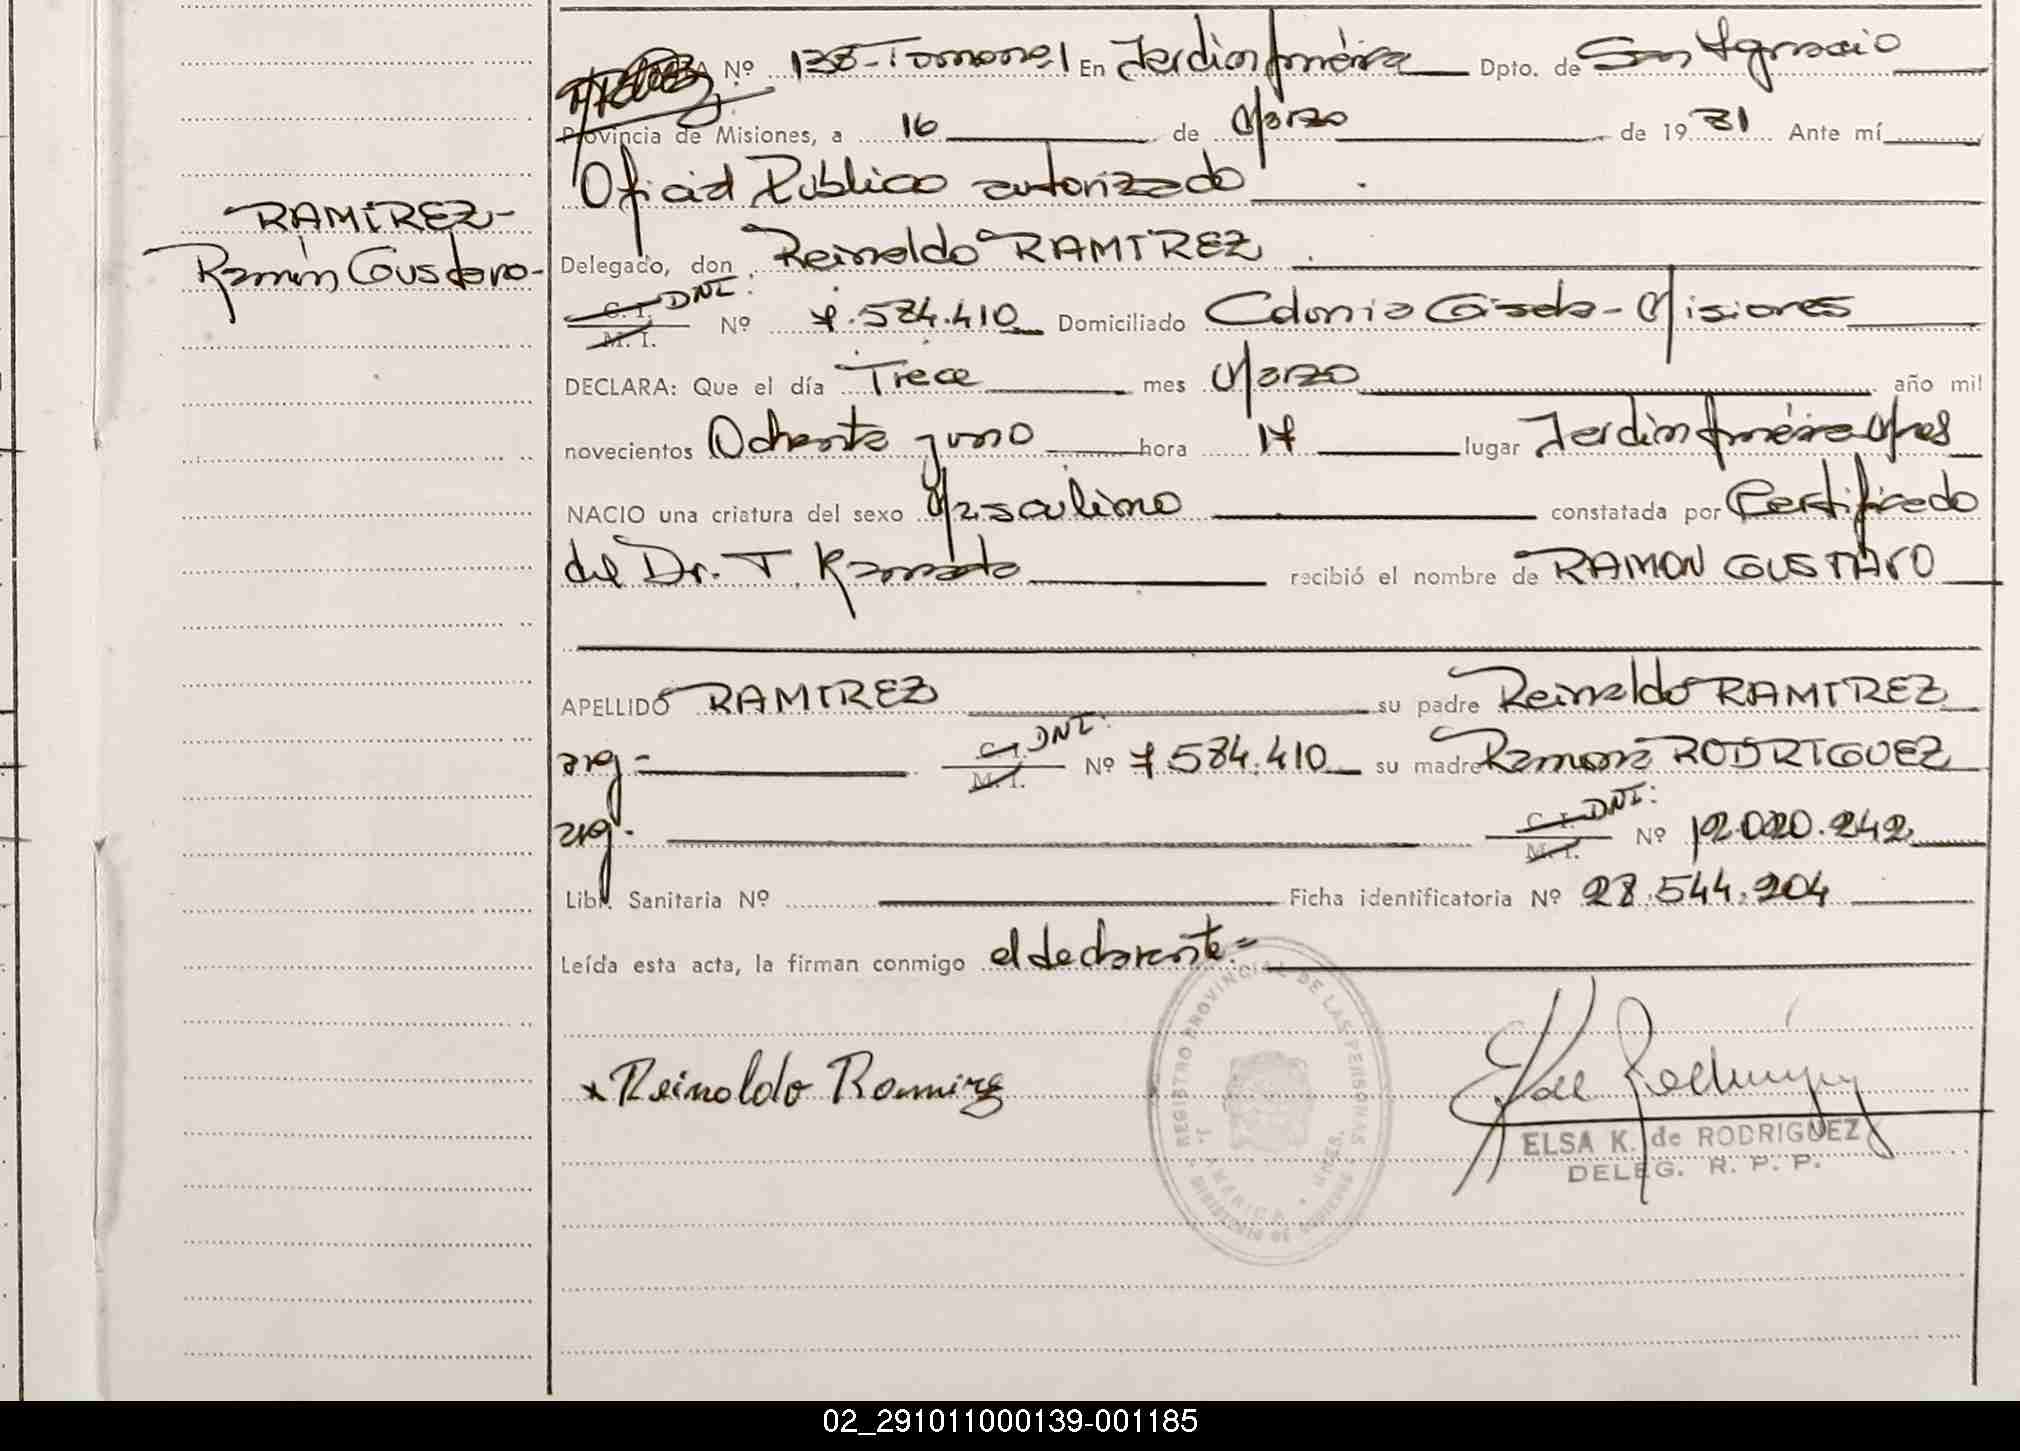 RAMIREZ-
Ramón Gustavo-
Nº 138-Tomono1 En Jardin América Dpto. de San Ignacio
Provincia de Misiones, a 16 de Marzo de 1981 Ante mí
Oficial Público autorizado
Delegado, don Reinaldo RAMIREZ
C. I. DNI: M. I. Nº 7.584.410 Domiciliado Colonia Gisela-Misiones
DECLARA: Que el día Trece mes Marzo año mil
novecientos Ochenta y uno hora 17 lugar Jardin América Mnes
NACIO una criatura del sexo Masculino constatada por Certificado
del Dr. T. recibió el nombre de RAMON GUSTAVO
APELLIDO RAMIREZ su padre Reinaldo RAMIREZ
arg- C. I. DNI: M. I. Nº 7.584.410 su madre Ramona RODRIGUEZ
arg. C. I. DNI: M. I. Nº 12.020.242
Libr. Sanitaria Nº Ficha identificatoria Nº 28.544.204
Leída esta acta, la firman conmigo el declarante=
REGISTRO PROVINCIAL DE LAS PERSONAS
J. AMERICA • MNES.
x Reinaldo Ramirez
ELSA K. de RODRIGUEZ
DELEG. R. P. P.
02_291011000139-001185